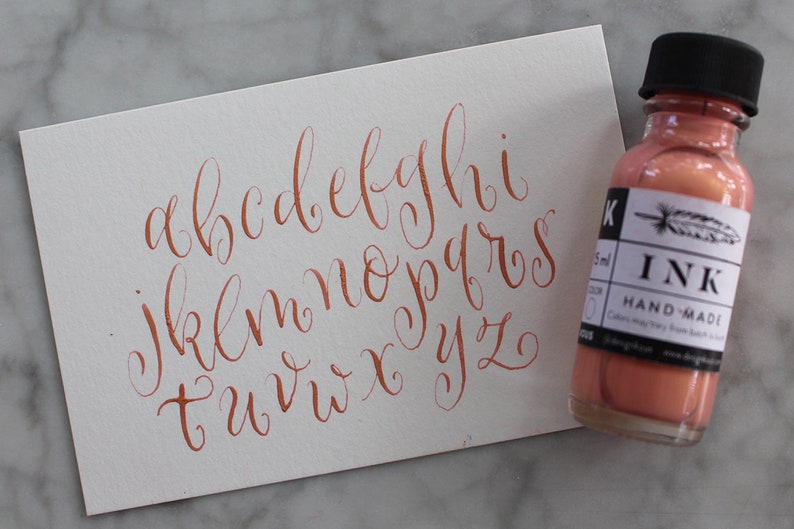 abcdefghi
jklmnopqrs
tuvwxyz
K
5 ml
INK
HAND MADE
COLOR
Colors may vary from batch to